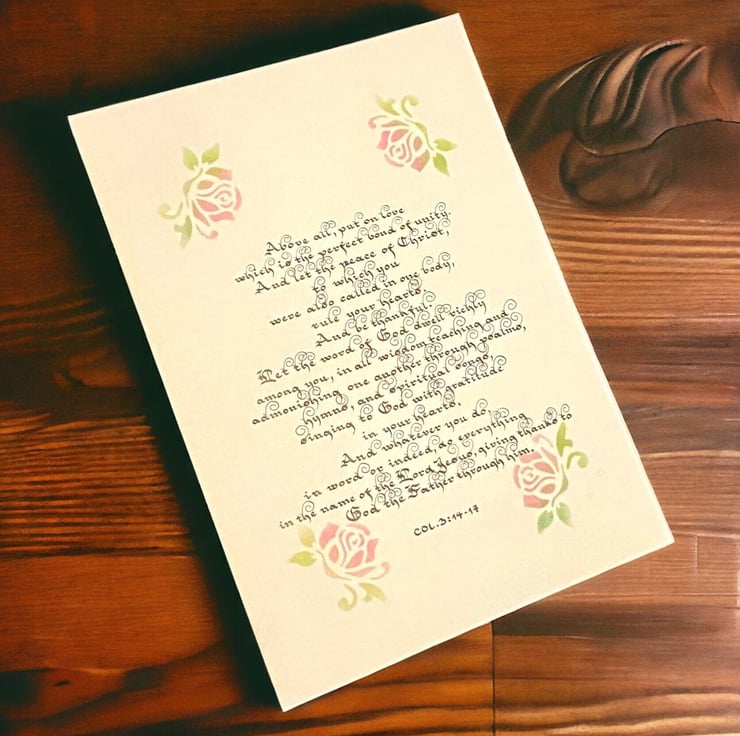 Above all, put on love
which is the perfect bond of unity.
And let the peace of Christ,
to which you
were also called in one body,
rule your hearts.
And be thankful.
Let the word of God dwell richly
among you, in all wisdom teaching and
admonishing one another through psalms,
hymns, and spiritual songs,
singing to God with gratitude
in your hearts.
And whatever you do
in word or indeed, do everything
in the name of the Lord Jesus, giving thanks to
God the Father through him.
COL.3:14-17